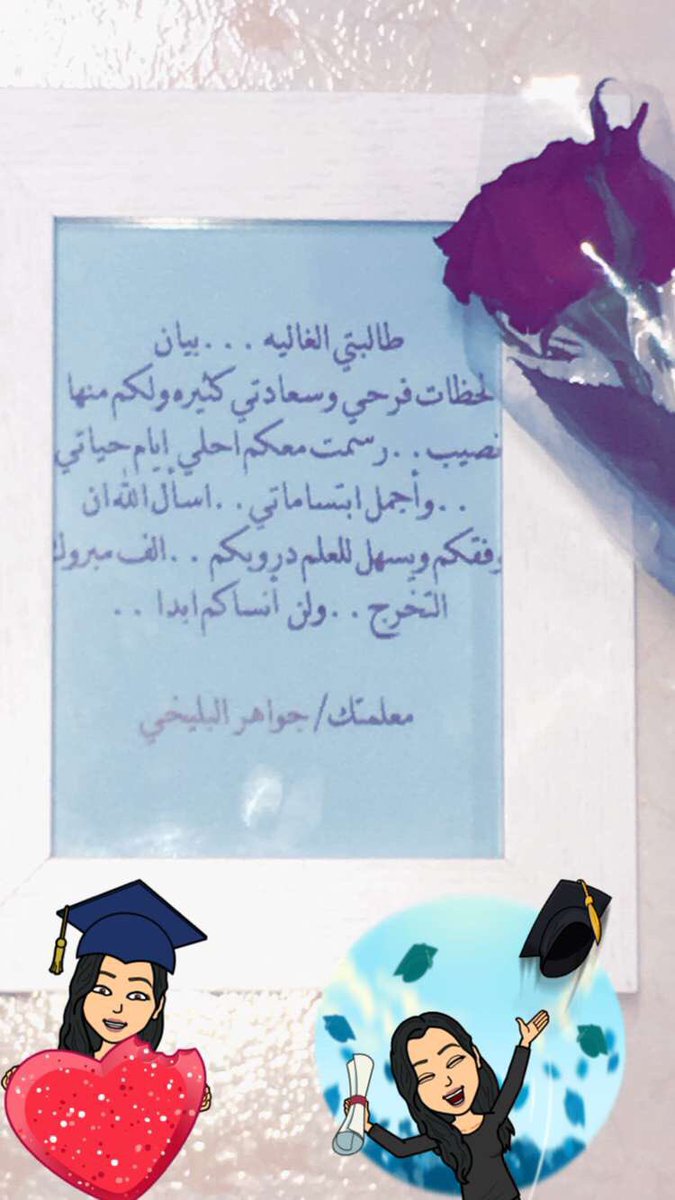 طالبتي الغاليه . . . بيان
لحظات فرحي وسعادتي كثيره ولكم منها
نصيب . . رسمت معكم احلي ايام حياتي
. . وأجمل ابتساماتي . . اسأل الله ان
يوفقكم ويسهل للعلم دروبكم . . الف مبروك
التخرج . . ولن أنساكم ابدا . .
معلمتك/ جواهر البليخي